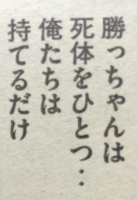 勝っちゃんは
死体をひとつ‥
俺たちは
持てるだけ